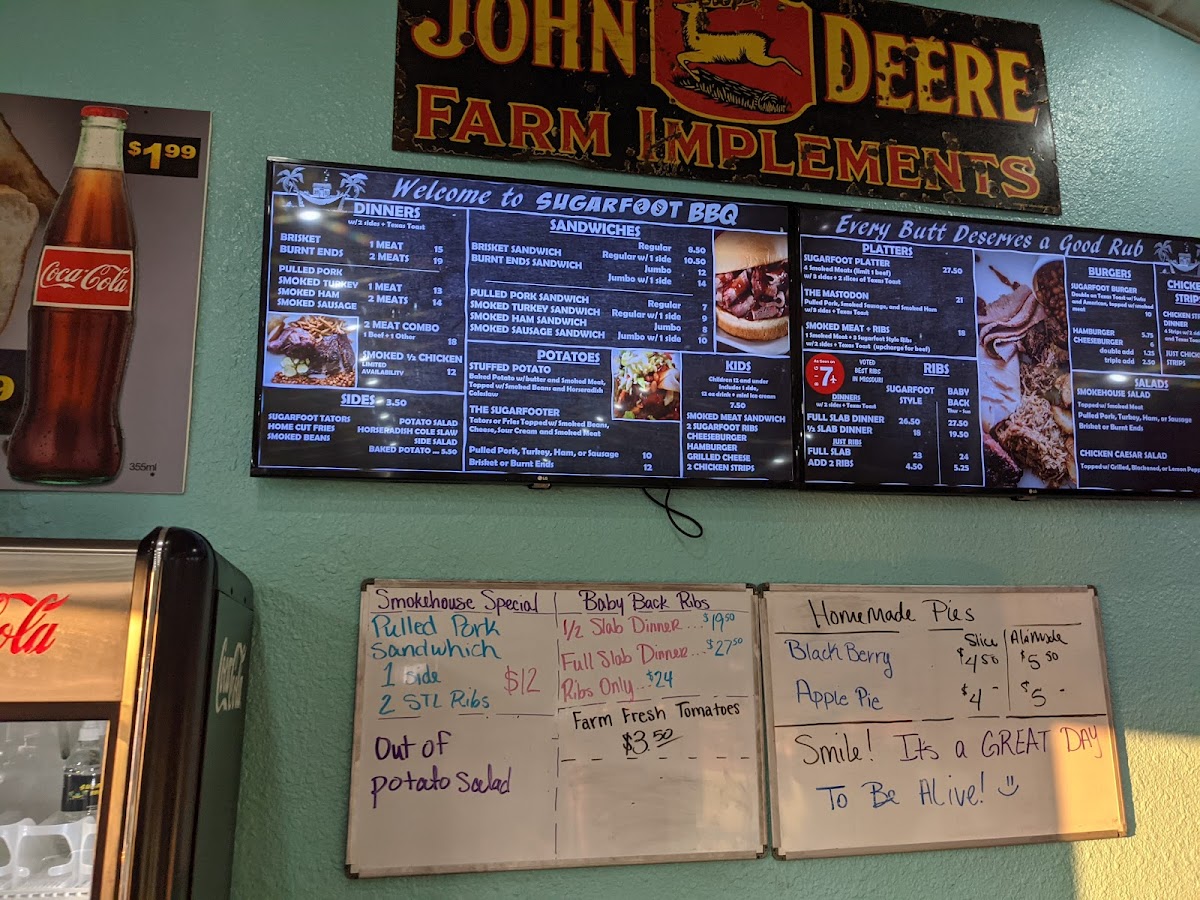 JOHN DEERE
FARM IMPLEMENTS
$1.99
Coca-Cola
355ml
9
Welcome to SUGARFOOT BBQ
DINNERS
w/2 sides + Texas Toast
BRISKET
BURNT ENDS
1 MEAT 15
2 MEATS 19
PULLED PORK
SMOKED TURKEY
SMOKED HAM
SMOKED SAUSAGE
1 MEAT 13
2 MEATS 14
2 MEAT COMBO
1 Beef + 1 Other 18
SMOKED ½ CHICKEN
LIMITED AVAILABILITY 12
SIDES 3.50
SUGARFOOT TATORS
HOME CUT FRIES
SMOKED BEANS
POTATO SALAD
HORSERADISH COLE SLAW
SIDE SALAD
BAKED POTATO ... 5.50
SANDWICHES
BRISKET SANDWICH
BURNT ENDS SANDWICH
Regular 8.50
Regular w/1 side 10.50
Jumbo 12
Jumbo w/1 side 14
PULLED PORK SANDWICH
SMOKED TURKEY SANDWICH
SMOKED HAM SANDWICH
SMOKED SAUSAGE SANDWICH
Regular 7
Regular w/1 side 9
Jumbo 8
Jumbo w/1 side 10
POTATOES
STUFFED POTATO
Baked Potato w/butter and Smoked Meat,
Topped w/Smoked Beans and Horseradish
Coleslaw
THE SUGARFOOTER
Tators or Fries Topped w/Smoked Beans,
Cheese, Sour Cream and Smoked Meat
Pulled Pork, Turkey, Ham, or Sausage 10
Brisket or Burnt Ends 12
KIDS
Children 12 and under
Includes 1 side,
12 oz drink + mini ice cream
7.50
SMOKED MEAT SANDWICH
2 SUGARFOOT RIBS
CHEESEBURGER
HAMBURGER
GRILLED CHEESE
2 CHICKEN STRIPS
Every Butt Deserves a Good Rub
PLATTERS
SUGARFOOT PLATTER
6 Smoked Meats (limit 1 beef)
w/3 sides + 2 slices of Texas Toast 27.50
THE MASTODON 21
Pulled Pork, Smoked Sausage, and Smoked Ham
w/2 sides + Texas Toast
SMOKED MEAT + RIBS 18
1 Smoked Meat + 3 Sugarfoot Style Ribs
w/2 sides + Texas Toast (upcharge for beef)
As Seen on
7
VOTED
BEST RIBS
IN MISSOURI
RIBS
DINNERS
w/2 sides + Texas Toast
SUGARFOOT STYLE
BABY BACK
Thur - Sun
FULL SLAB DINNER 26.50 27.50
½ SLAB DINNER 18 19.50
JUST RIBS
FULL SLAB 23 24
ADD 2 RIBS 4.50 5.25
BURGERS
SUGARFOOT BURGER
Double on Texas Toast w/Swiss
and American, topped w/smoked
meat 10
HAMBURGER 5.75
CHEESEBURGER 6
double add 1.25
triple add 2.50
SALADS
SMOKEHOUSE SALAD
Topped w/Smoked Meat
Pulled Pork, Turkey, Ham, or Sausage
Brisket or Burnt Ends
CHICKEN CAESAR SALAD
Topped w/Grilled, Blackened, or Lemon
CHICKEN
DINNER
and Texas
STRIPS
Smokehouse Special
Pulled Pork
Sandwhich
1 side
2 STL Ribs
$12
Out of
potato Salad
Baby Back Ribs
1/2 Slab Dinner...$19.50
Full Slab Dinner...$27.50
Ribs Only...$24
Farm Fresh Tomatoes
$3.50
HomeMade Pies
Slice AlaMode
BlackBerry $4.50 $5.50
Apple Pie $4- $5-
Smile! It's a GREAT DAY
To Be Alive!
Coca-Cola
ola